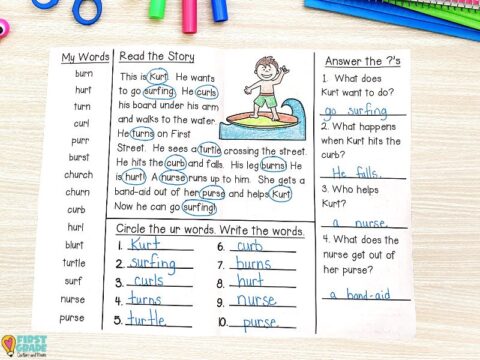 My Words
burn
hurt
turn
curl
purr
burst
church
churn
curb
hurl
blurt
turtle
surf
nurse
purse
Read the Story
This is Kurt. He wants
to go surfing. He curls
his board under his arm
and walks to the water.
He turns on First
Street. He sees a turtle crossing the street.
He hits the curb and falls. His leg burns! He
is hurt! A nurse runs up to him. She gets a
band-aid out of her purse and helps Kurt.
Now he can go surfing!
Circle the ur words. Write the words.
1. Kurt
2. surfing
3. curls
4. turns
5. turtle
6. curb
7. burns
8. hurt
9. nurse
10. purse
Answer the ?'s
1. What does
Kurt want to do?
go surfing
2. What happens
when Kurt hits the
curb?
He falls.
3. Who helps
Kurt?
a nurse
4. What does the
nurse get out of
her purse?
a band-aid
FIRST
GRADE